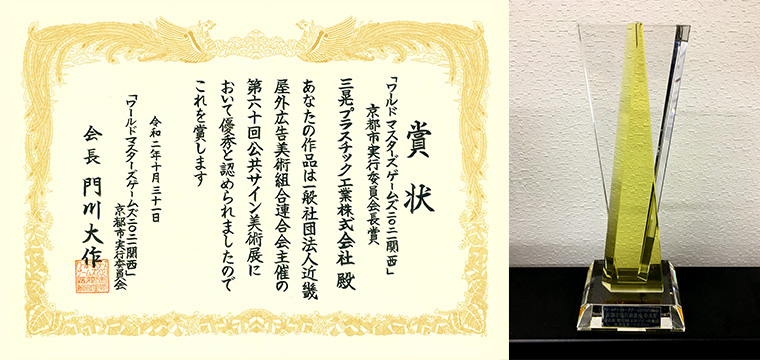 賞状
「ワールドマスターズゲームズ二〇二一関西」
京都市実行委員会長賞
三晃プラスチック工業株式会社 殿
あなたの作品は一般社団法人近畿
屋外広告美術組合連合会主催の
第六十回公共サイン美術展に
おいて優秀と認められましたので
これを賞します
令和二年十月三十一日
「ワールドマスターズゲームズ二〇二一関西」
京都市実行委員会
会長 門川大作